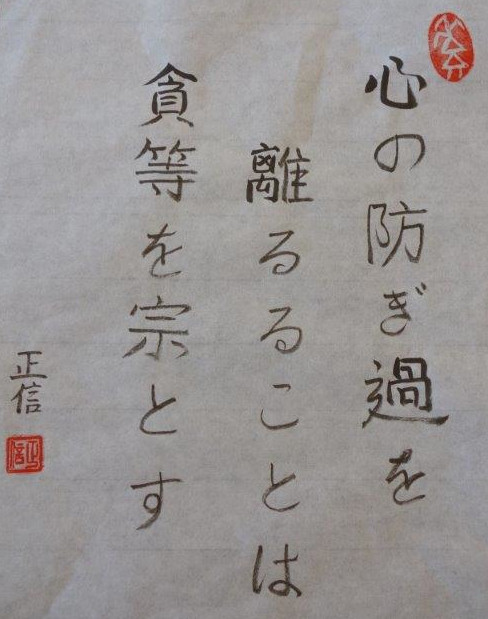 心の防ぎ過を
離るることは
貪等を宗とす
正信